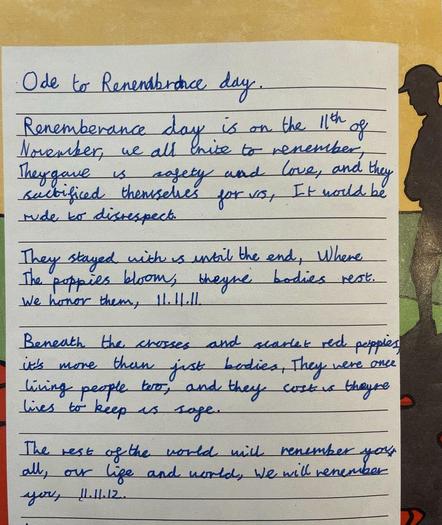 Ode to Renenbrance day.
Renemberance day is on the 11th of
November, we all unite to remember,
They gave us safety and love, and they
sacrificed themselves for us, It would be
rude to disrespect.
They stayed with us until the end, Where
The poppies bloom, theyre bodies rest.
We honor them, 11.11.11.
Beneath the crosses and scarlet red poppies,
it's more than just bodies, They were once
living people too, and they cost us theyre
lives to keep us safe.
The rest of the world will remember your
all, our life and world, We will remember
you, 11.11.12.